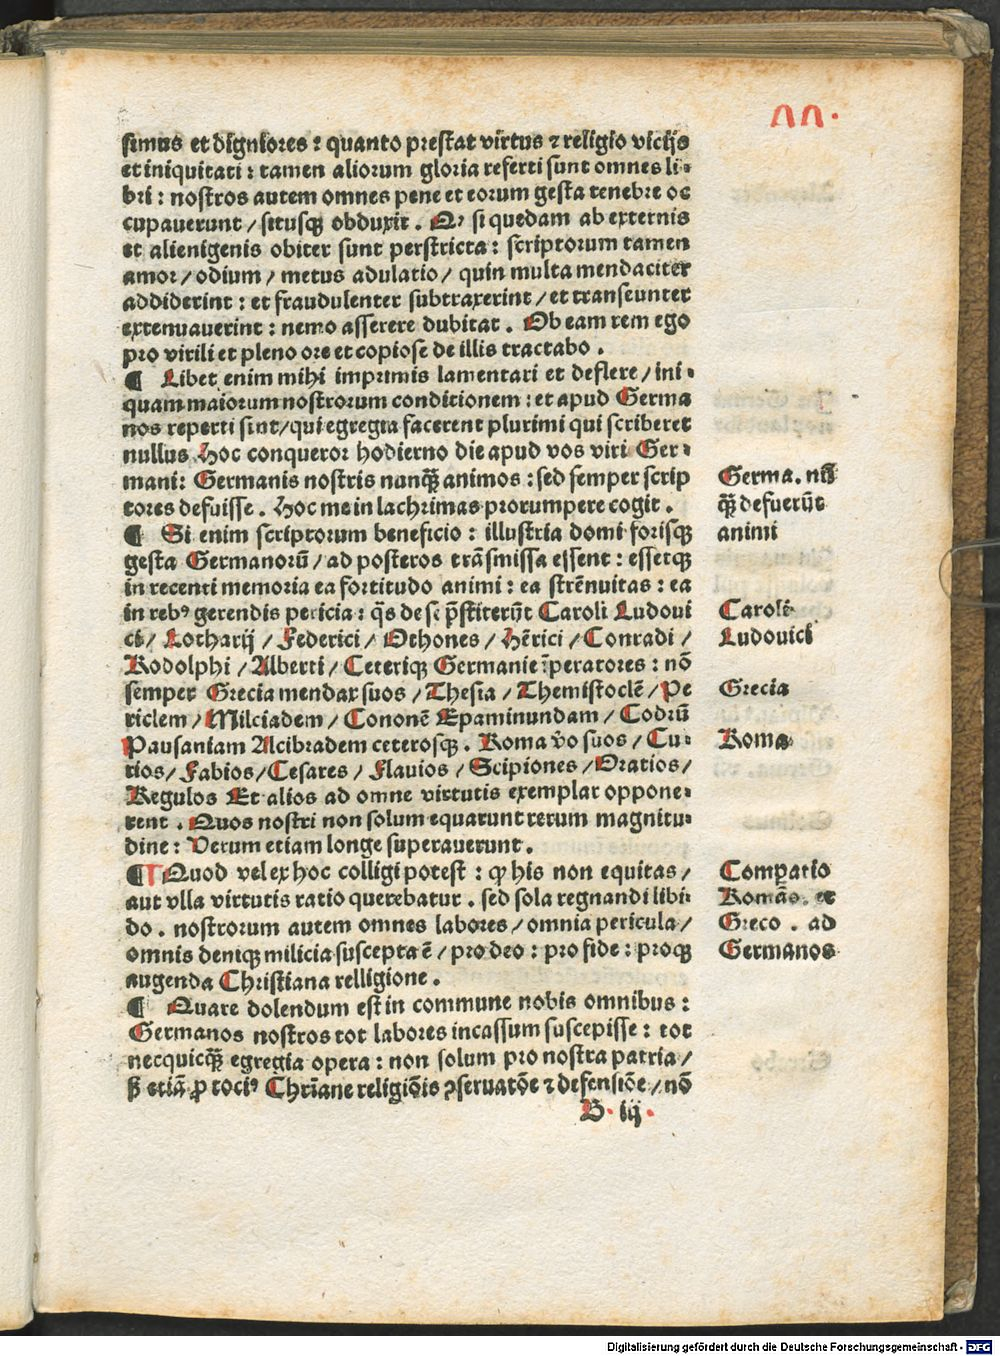 simus et digniores : quanto prestat virtus ⁊ religio vicijs
et iniquitati : tamen aliorum gloria referti sunt omnes li-
bri : nostros autem omnes pene et eorum gesta tenebre oc
cupauerunt / situsqꝫ obduxit . Q, si quedam ab externis
et alienigenis obiter sunt perstricta : scriptorum tamen
amor / odium / metus adulatio / quin multa mendaciter
addiderint : et fraudulenter subtraxerint / et transeunter
extenuauerint : nemo asserere dubitat . Ob eam rem ego
pro virili et pleno ore et copiose de illis tractabo .
¶ Libet enim mihi imprimis lamentari et deflere / ini-
quam maiorum nostrorum conditionem : et apud Germa
nos reperti sint / qui egregia facerent plurimi qui scriberet
nullus Hoc conqueror hodierno die apud vos viri Ger-
mani : Germanis nostris nunqꝫ̃ animos : sed semper scrip
tores defuisse . Hoc me in lachrimas prorumpere cogit .
¶ Si enim scriptorum beneficio : illustria domi forisqꝫ
gesta Germanorũ / ad posteros trãsmissa essent : essetqꝫ
in recenti memoria ea fortitudo animi : ea strẽnuitas : ea
in rebꝰ gerendis pericia : q̃s de se p̃stiterũt Caroli Ludoui
ci / Lotharij / Federici / Othones / Hẽrici / Conradi /
Rodolphi / Alberti / Ceteriqꝫ Germanie ĩperatores : nõ
semper Grecia mendax suos / Thesia / Themistoclẽ / Pe
riclem / Milciadem / Cononẽ Epaminundam / Codrũ
Pausaniam Alcibradem ceterosqꝫ . Roma ṽo suos / Cu-
rios / Fabios / Cesares / Flauios / Scipiones / Oratios /
Regulos Et alios ad omne virtutis exemplar oppone-
rent . Quos nostri non solum equarunt rerum magnitu-
dine : Verum etiam longe superauerunt .
¶ Quod vel ex hoc colligi potest : ꝙ his non equitas /
aut vlla virtutis ratio querebatur . sed sola regnandi libi-
do . nostrorum autem omnes labores / omnia pericula /
omnis deniqꝫ milicia suscepta ẽ / pro deo : pro fide : proqꝫ
augenda Christiana relligione .
¶ Quare dolendum est in commune nobis omnibus :
Germanos nostros tot labores incassum suscepisse : tot
necquicqꝫ̃ egregia opera : non solum pro nostra patria /
ꝫ etiã ꝓ tociꝰ Chrĩane religiõis ꝯseruatõe ⁊ defensiõe / nõ
B . iij .
Germa . nũ
qꝫ̃ defuerũt
animi
Caroli
Ludouici
Grecia
Roma
Comp̱atio
Romão . et
Greco . ad
Germanos
Digitalisierung gefördert durch die Deutsche Forschungsgemeinschaft - DFG